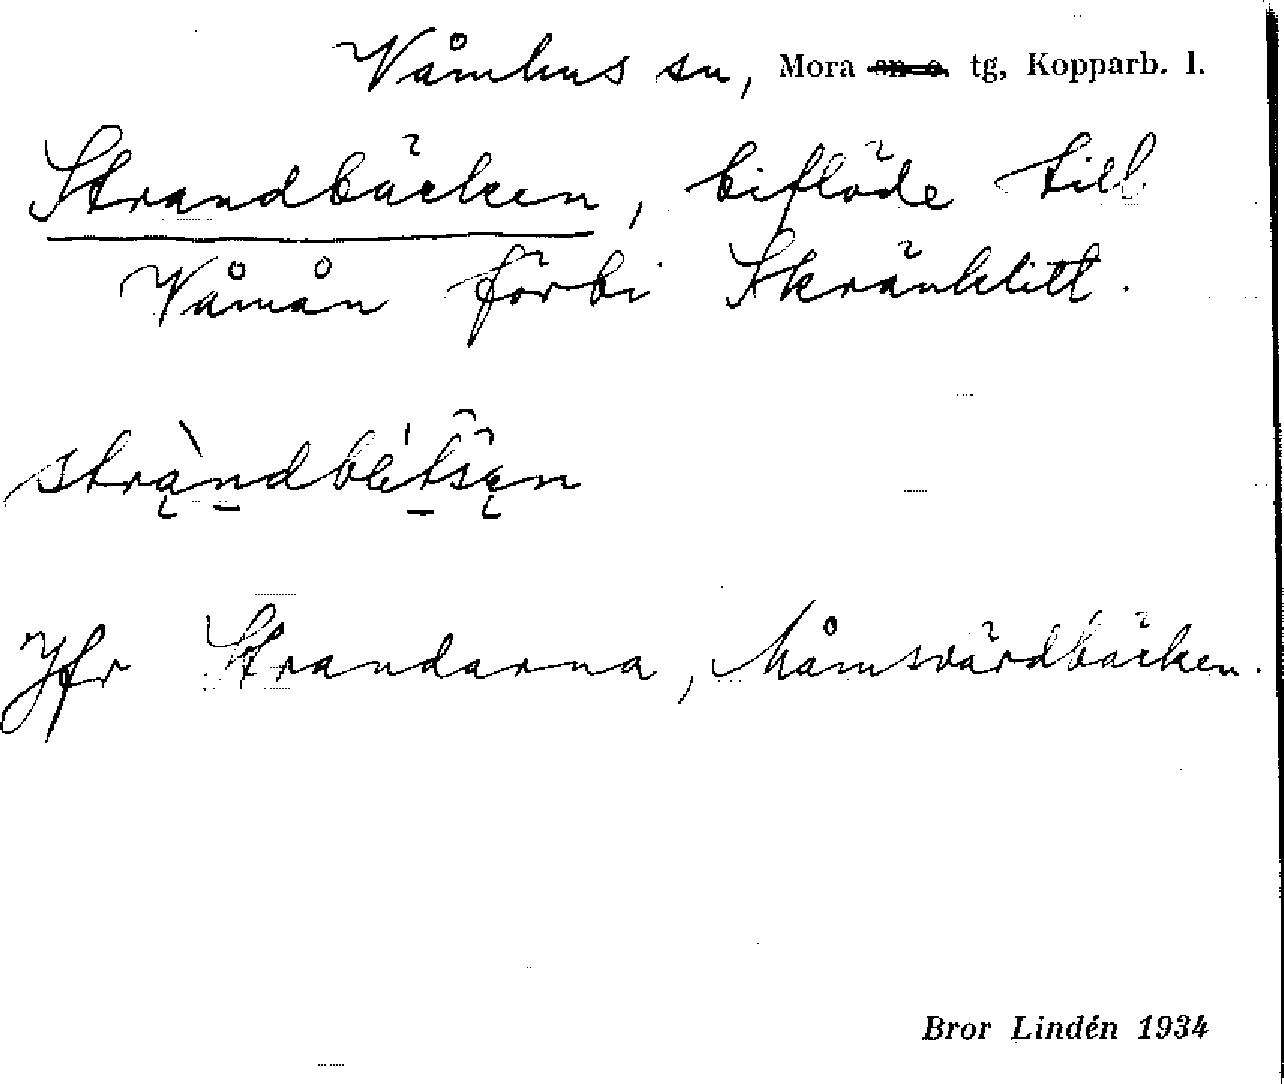 Våmhus sn, Mora sn o. tg, Kopparb. l.
Strandbäcken, biflöde till
Våmån förbi Skränklitt.
Jfr Strandarna, Måmsvärdbäcken.
Bror Lindén 1934